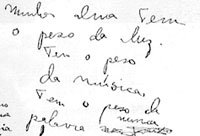 Minha alma tem
o peso da luz.
Tem o peso
da música.
Tem o peso da
nunca
palavra